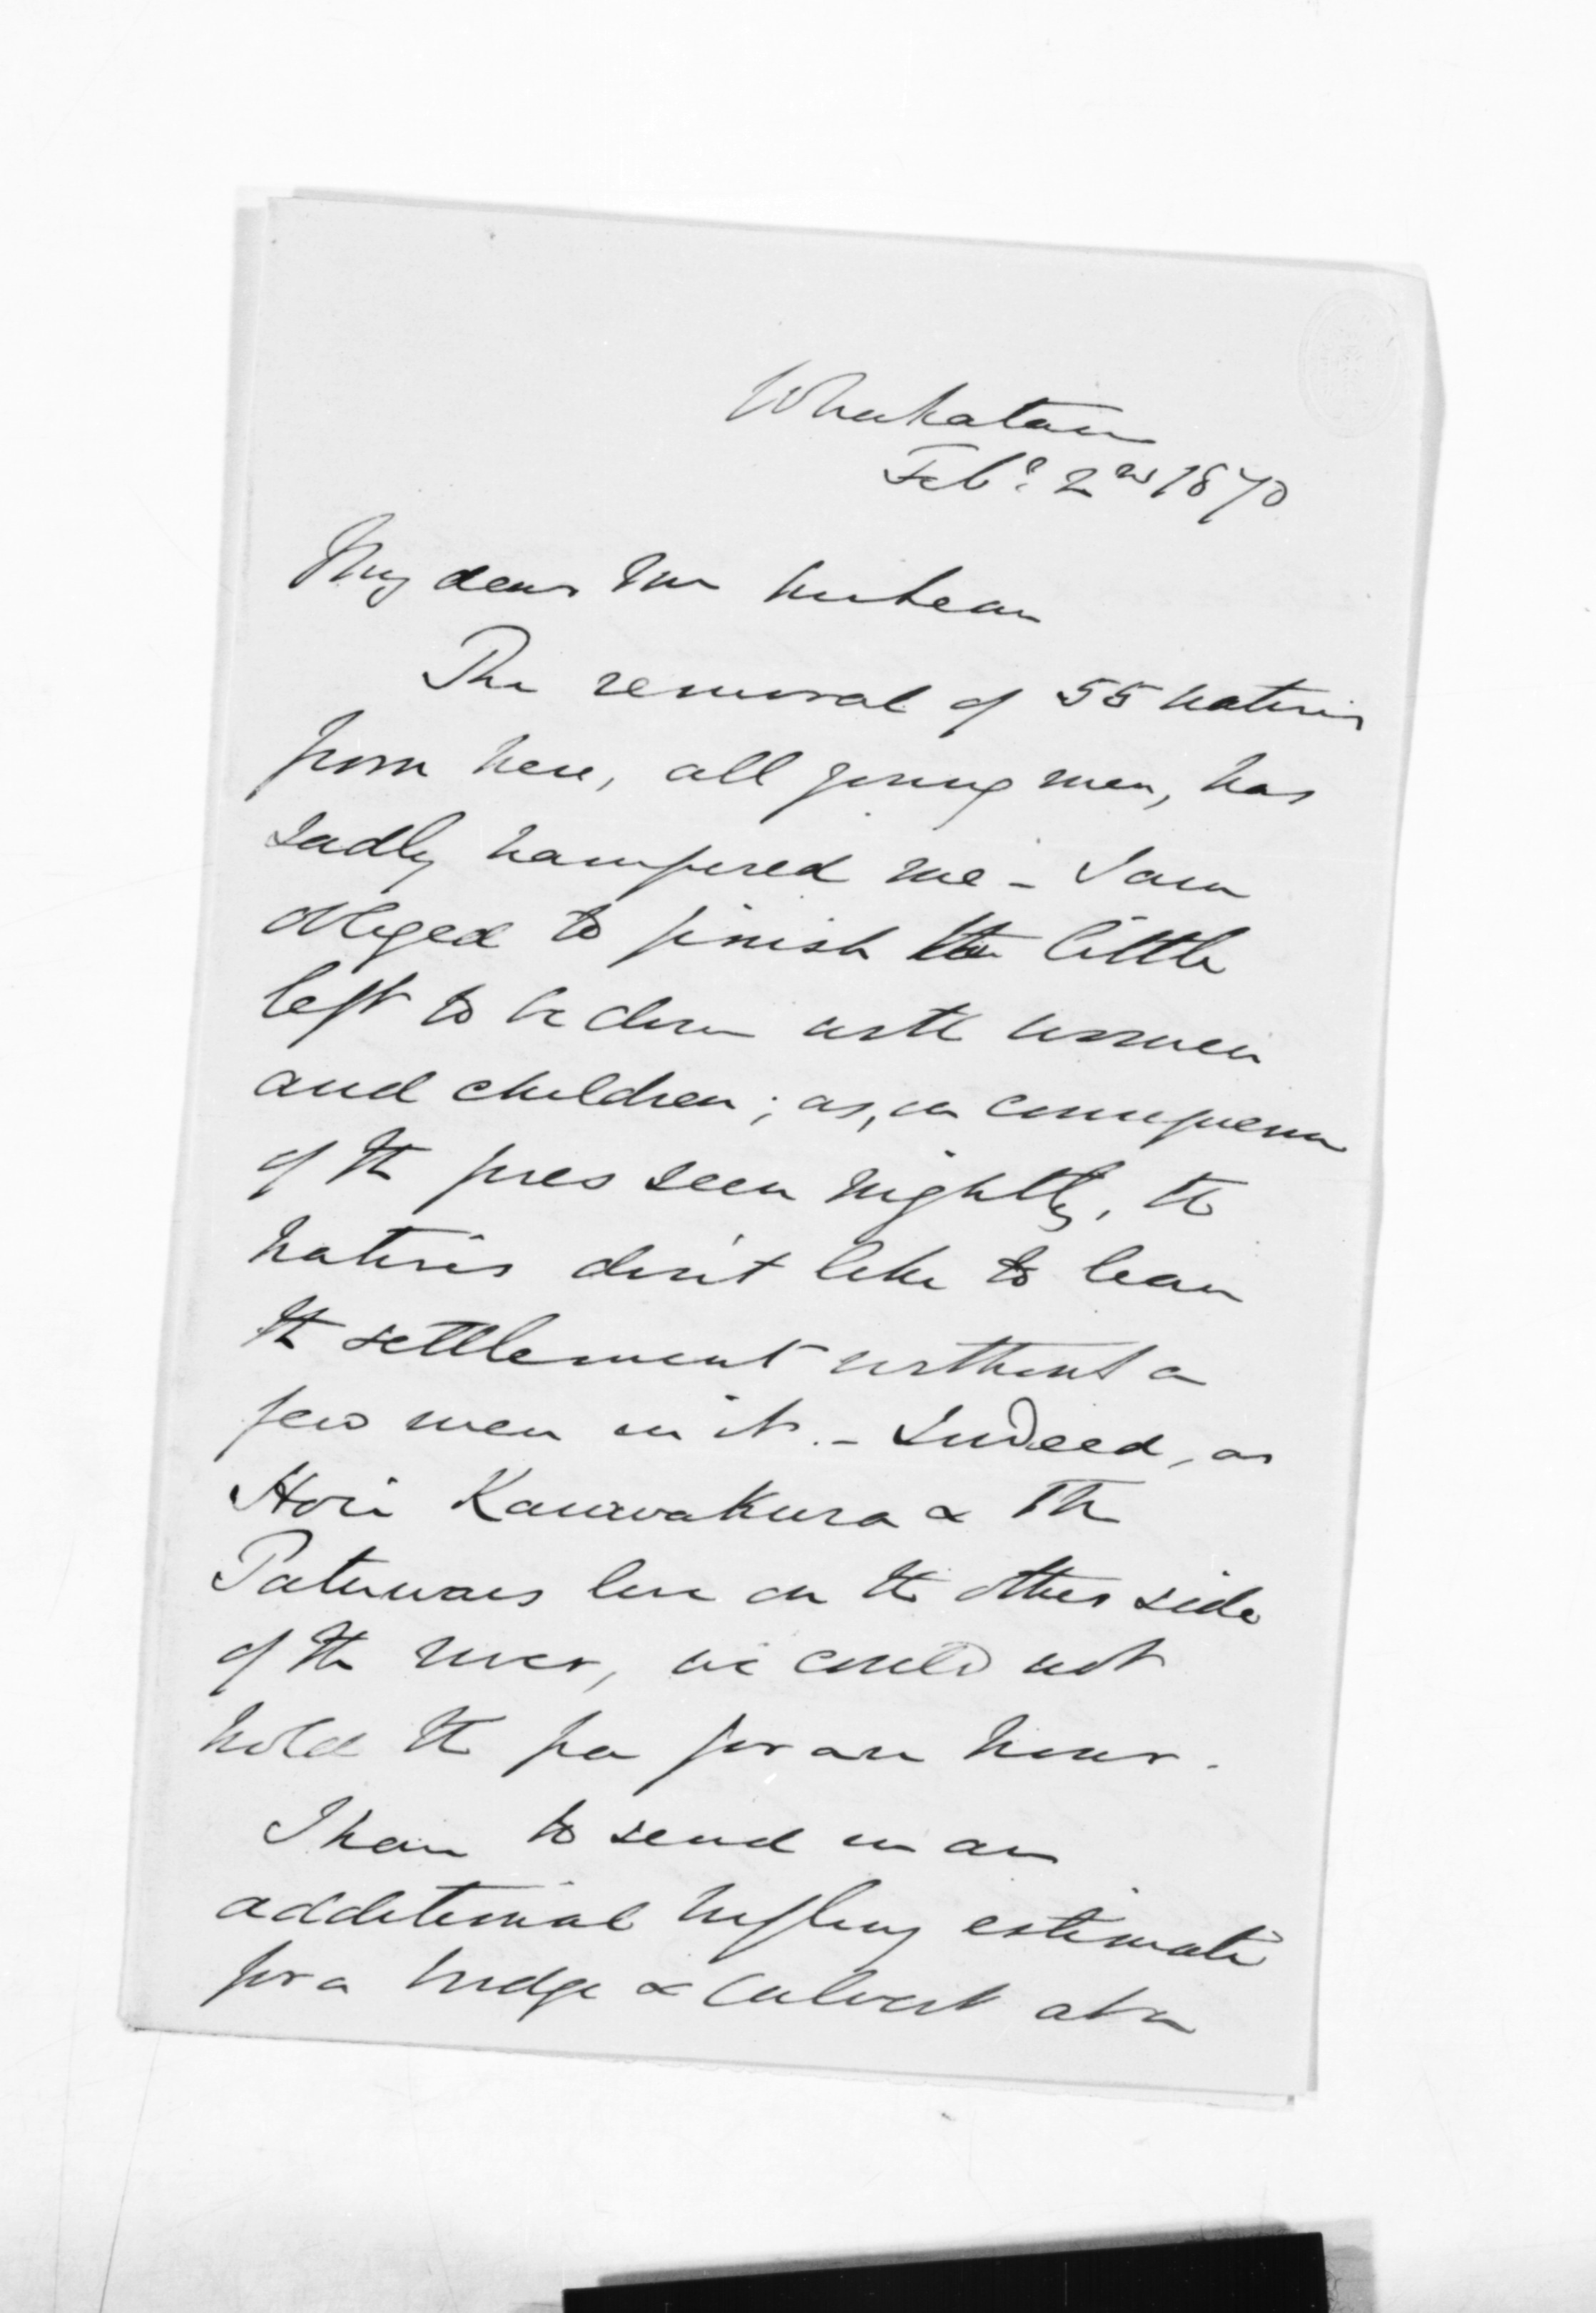 Whakatane
Feby. 2nd 1870
My dear Mr McLean
The removal of 55 natives
from here, all young men, has
sadly hampered me - I am
obliged to finish the little
left to be done with women
and children; as, in consequence
of the fires seen nightly, the
natives don't like to leave
the settlement without a
few men in it. - Indeed, as
Hori Kawakura & The
Patuwais live on the other side
of the river, we could not
hold the pa for an hour.
I have to send in an
additional trifling estimate
for a bridge & culvert at a